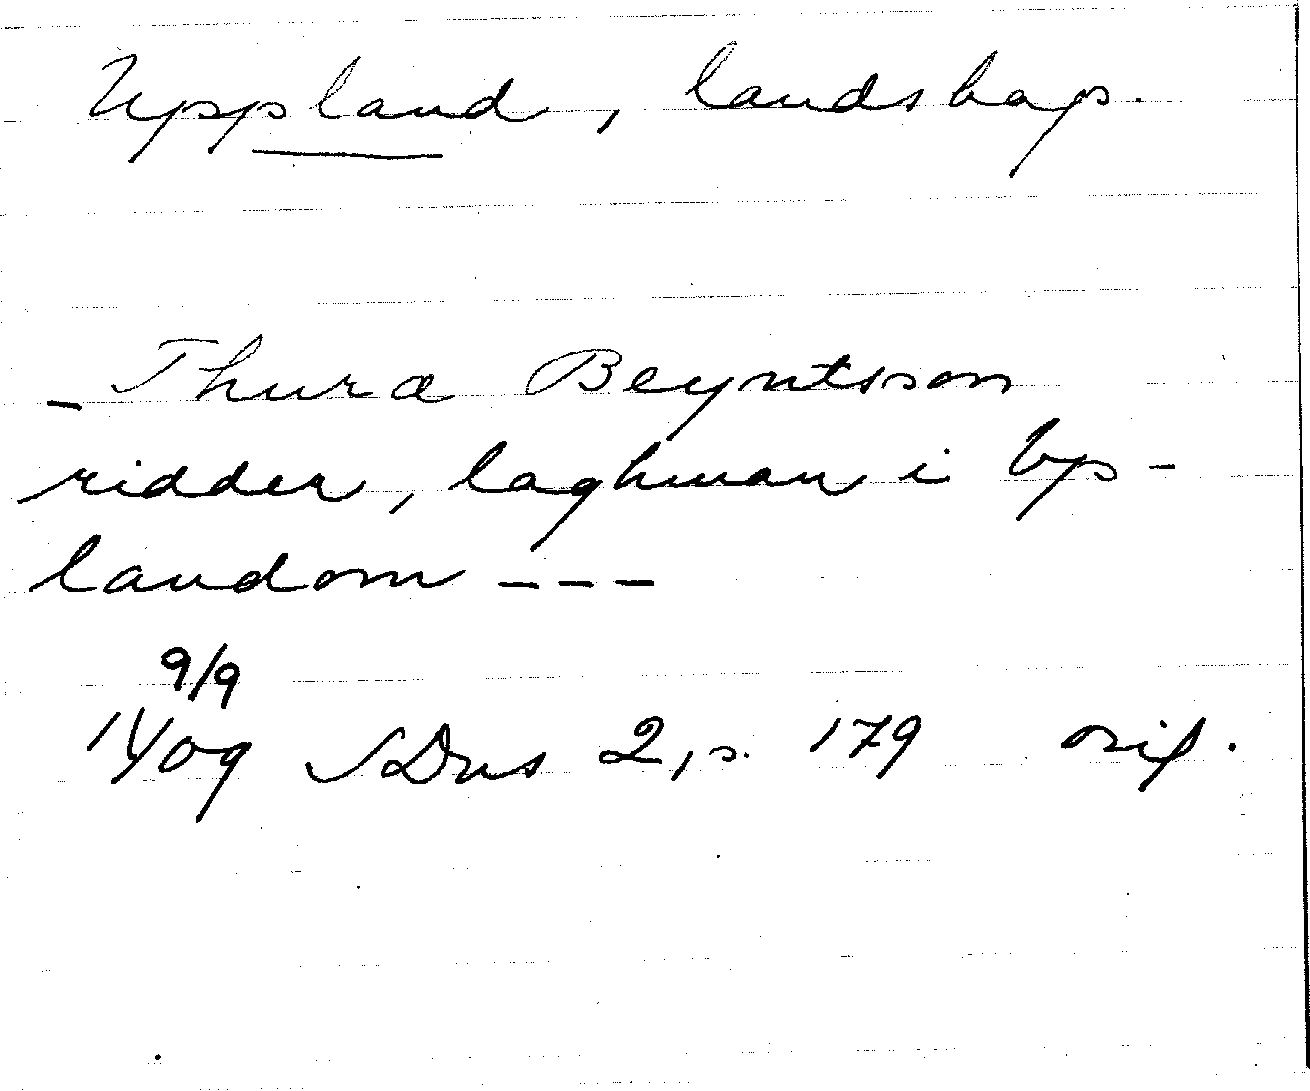 Uppland, landskap.
- Thura Beyntsson
ridder, laghman i Vp-
landom - - -
9/9
1409 SDns 2, s. 179 orig.